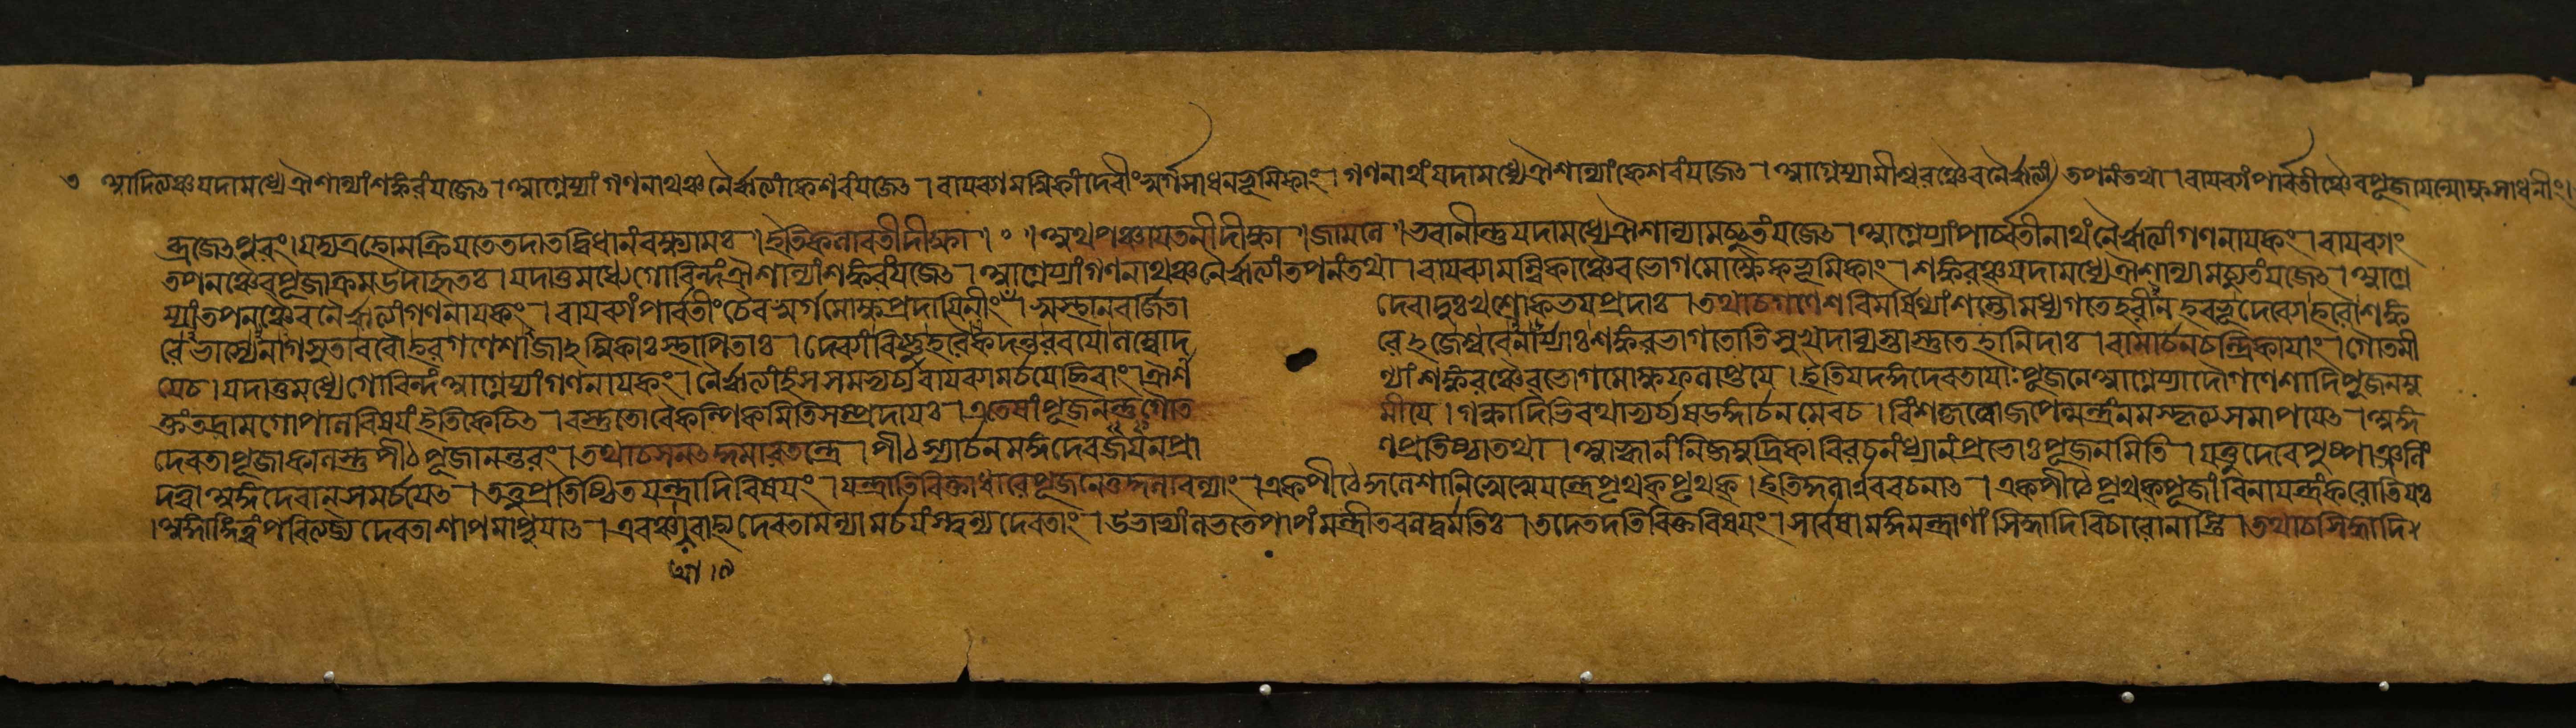 ৺ আদিত্যঞ্চ যদামধ্যে ঐশান্যাং শঙ্করং যজেৎ । আগ্নেয্যাং গণনাথঞ্চ নৈর্ঋত্যাং কেশবং যজেৎ । বাযব্যামম্বিকাং দেবীং স্বর্গসাধনভূমিকাং । গণনাথং যদামধ্যে ঐশান্যাং কেশবং যজেৎ । আগ্নেয্যামীশ্বরঞ্চৈব নৈর্ঋত্যাং তপনং তথা । বাযব্যাং পার্বতীঞ্চৈব পূজযেন্মোক্ষসাধনীং ।
যদ্যত্র হোমক্রিযাতে তদা তদ্বিধানং বক্ষ্যামঃ । ইতি কলাবতীদীক্ষা । ॰ । অথ পঞ্চাযতনীদীক্ষা । জামলে । ভবানীন্তু যদামধ্যে ঐশান্যামচ্যুতং যজেৎ । আগ্নেয্যাং পার্ব্বতীনাথং নৈর্ঋত্যাং গণনাযকং । বাযব্যাং
তপনঞ্চৈব পূজাক্রম উদাহৃতঃ । যদাতু মধ্যে গোবিন্দং ঐশান্যাং শঙ্করং যজেৎ । আগ্নেয্যাং গণনাথঞ্চ নৈর্ঋত্যাং তপনং তথা । বাযব্যামম্বিকাঞ্চৈব ভোগমোক্ষৈকভূমিকাং । শঙ্করঞ্চ যদামধ্যে ঐশান্যামচ্যুতং যজেৎ । আগ্নে
য্যাং তপনঞ্চৈব নৈর্ঋত্যাং গণনাযকং । বাযব্যাং পার্বতীং চৈব স্বর্গমোক্ষপ্রদাযিনীং । স্বস্থানবর্জিতা দেবা দুঃখশোকভযপ্রদাঃ । তথাচ গণেশবিমর্ষিণ্যাং শম্ভৌ মধ্যগতে হরীনহরভূদেব্যো হরৌ শঙ্ক
রে ভাস্যেনাগসুতা রবৌ হরগণেশাজাম্বিকাঃ স্থাপিতাঃ । দেব্যাং বিষ্ণুহরৈকদন্তরবযো লম্বোদ রেহজেশ্বরেনার্য্যাঃ শঙ্করভাগতোতি সুখদা ব্যস্তাস্তুতে হানিদাঃ । রামার্চনচন্দ্রিকাযাং । গৌতমী
যেচ । যদাতু মধ্যে গোবিন্দং আগ্নেয্যাং গণনাযকং । নৈর্ঋত্যাং হংসমভ্যর্চ্য বাযব্যামর্চযেচ্ছিবাং । ঐশা ন্যাং শঙ্করঞ্চৈব ভোগমোক্ষফলাপ্তযে । ইতি যদঙ্গদেবতাযাঃ পূজনে আগ্নেয্যাদৌ গণেশাদিপূজনমু
ক্তং তদ্রামগোপালবিষযং ইতি কেচিৎ । বস্তুতো বৈকল্পিকমিতি সম্প্রদাযঃ । এতেষাং পূজনন্তু গৌত মীযে । গন্ধাদিভিরথাভ্যর্চ্য ষডঙ্গার্চনমেবচ । বিংশত্যব্দোজপেন্মন্ত্রং নমস্কৃত্য সমাপযেৎ । অঙ্গ
দেবতাপূজাকালস্তু পীঠপূজানন্তরং । তথাচ সনৎকুমারতন্ত্রে । পীঠস্যার্চনমঙ্গদেবজযনপ্রা ণপ্রতিষ্ঠা তথা । আহ্বানং নিজমুদ্রিকাবিরচনং ধ্যানং প্রভোঃ পূজনমিতি । যত্তু দেবে পুষ্পাঞ্জলিং
দত্বা অঙ্গদেবান্ সমর্চযেৎ । তত্তু প্রতিষ্ঠিতযন্ত্রাদিবিষযং । যন্ত্রাতিরিক্তাধারে পূজনে তু কুলাবল্যাং । একপীঠে কুলেশানি যেযে যন্ত্রে পৃথক্ পৃথক্ । ইতি কুলার্ণববচনাৎ । একপীঠে পৃথক্পূজাং বিনা যন্ত্রং করোতি যঃ
। অঙ্গাঙ্গিত্বং পরিত্যজ্য দেবতাশাপমাপ্নুযাৎ । এবঞ্চ আবাহ্য দেবতামন্যামর্চযংস্ত্বন্যদেবতাং । উভাভ্যাং লভতে শাপং মন্ত্রী তরলদুর্মতিঃ । তদেতদতিরিক্তবিষযং । সর্বেষামঙ্গমন্ত্রাণাং সিদ্ধাদিবিচারো নাস্তি । তথাচ সিদ্ধাদি